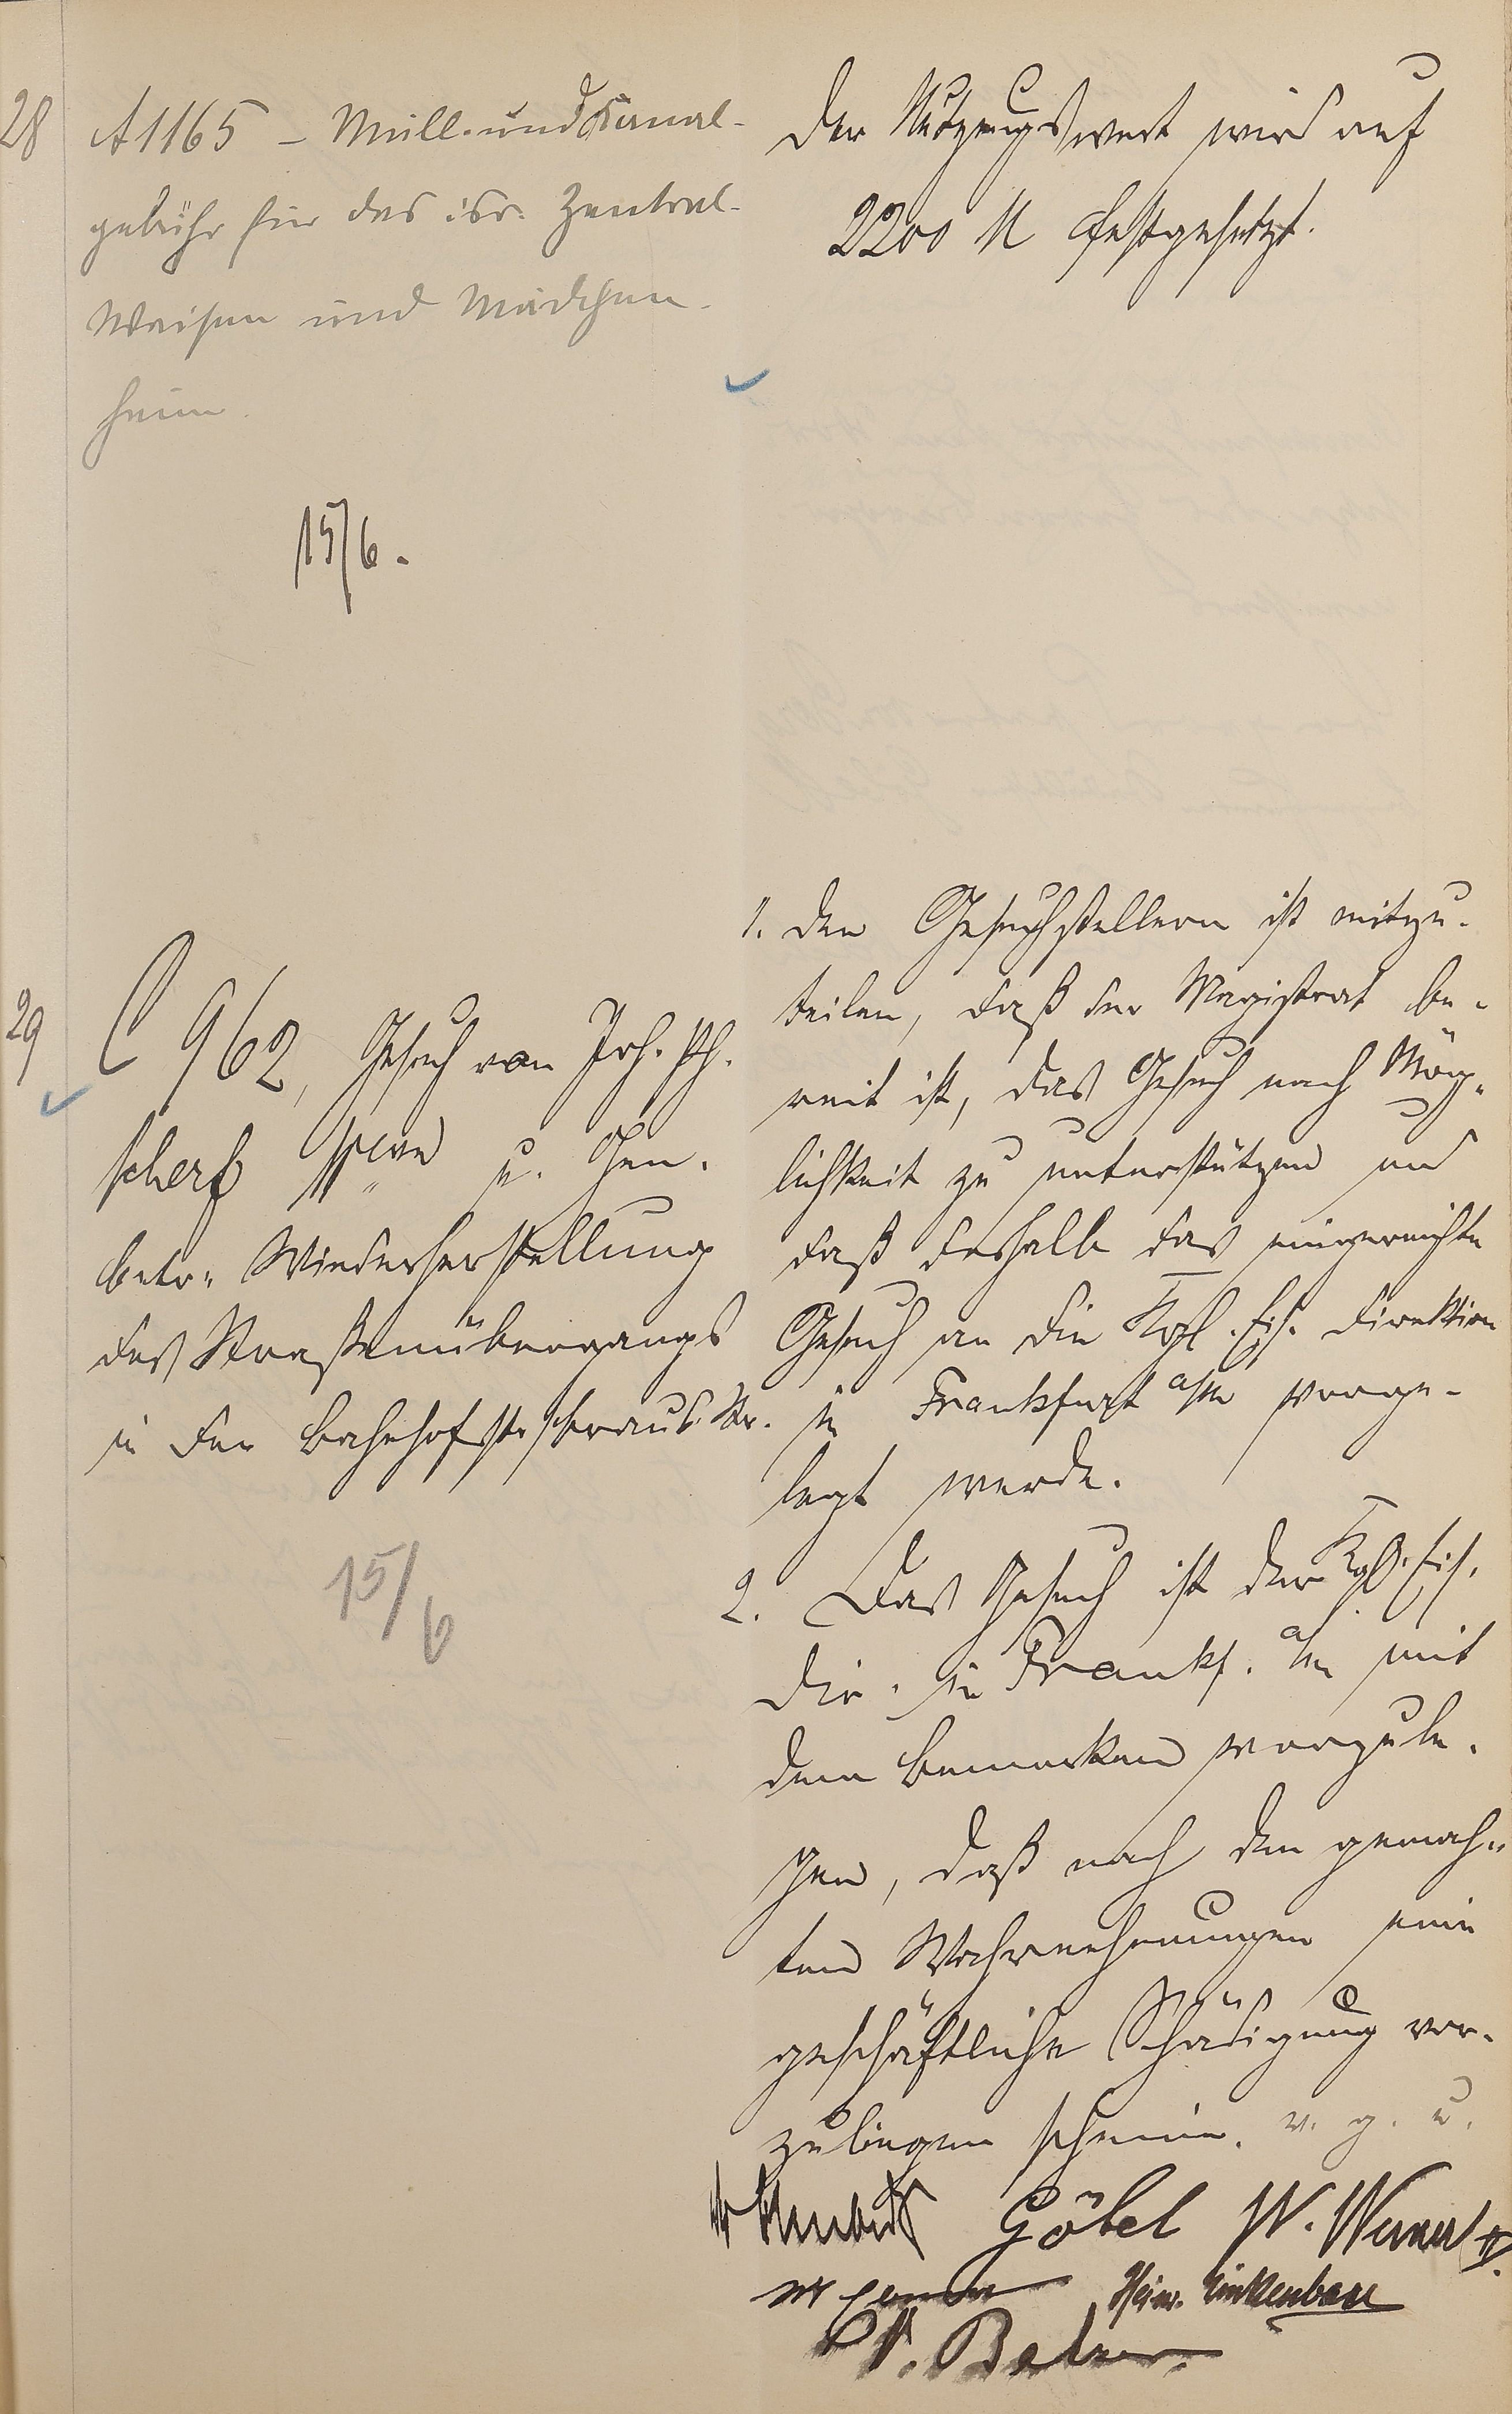 28
A 1165 - Müll- und Kanal-
gebühr für das isr. Zentral-
Waisen und Mädchen-
heim.
15/6.
Der Nutzungswert wird auf
2200 M festgesetzt.
29
C 962, Gesuch von Joh. Ph.
Scherf u. Gen.
betr. Wiederherstellung
des Straßenübergangs
in der Bahnhofstr.
15/6
1. Den Gesuchstellern ist mitzu-
teilen, daß der Magistrat be-
reit ist, das Gesuch nach Mög-
lichkeit zu unterstützen und
daß deshalb das eingereichte
Gesuch an die Kgl. Eis. Direktion
in Frankfurt a/M vorge-
legt werde.
2. Das Gesuch ist der Kgl. Eis.
Dir. in Frankf. a/M mit
dem Bemerken vorzule-
gen, daß nach den gemach-
ten Wahrnehmungen eine
geschäftliche Schädigung vor-
zuliegen scheine. v. g. u.
Göbel W. Werner IV.
Heinr.